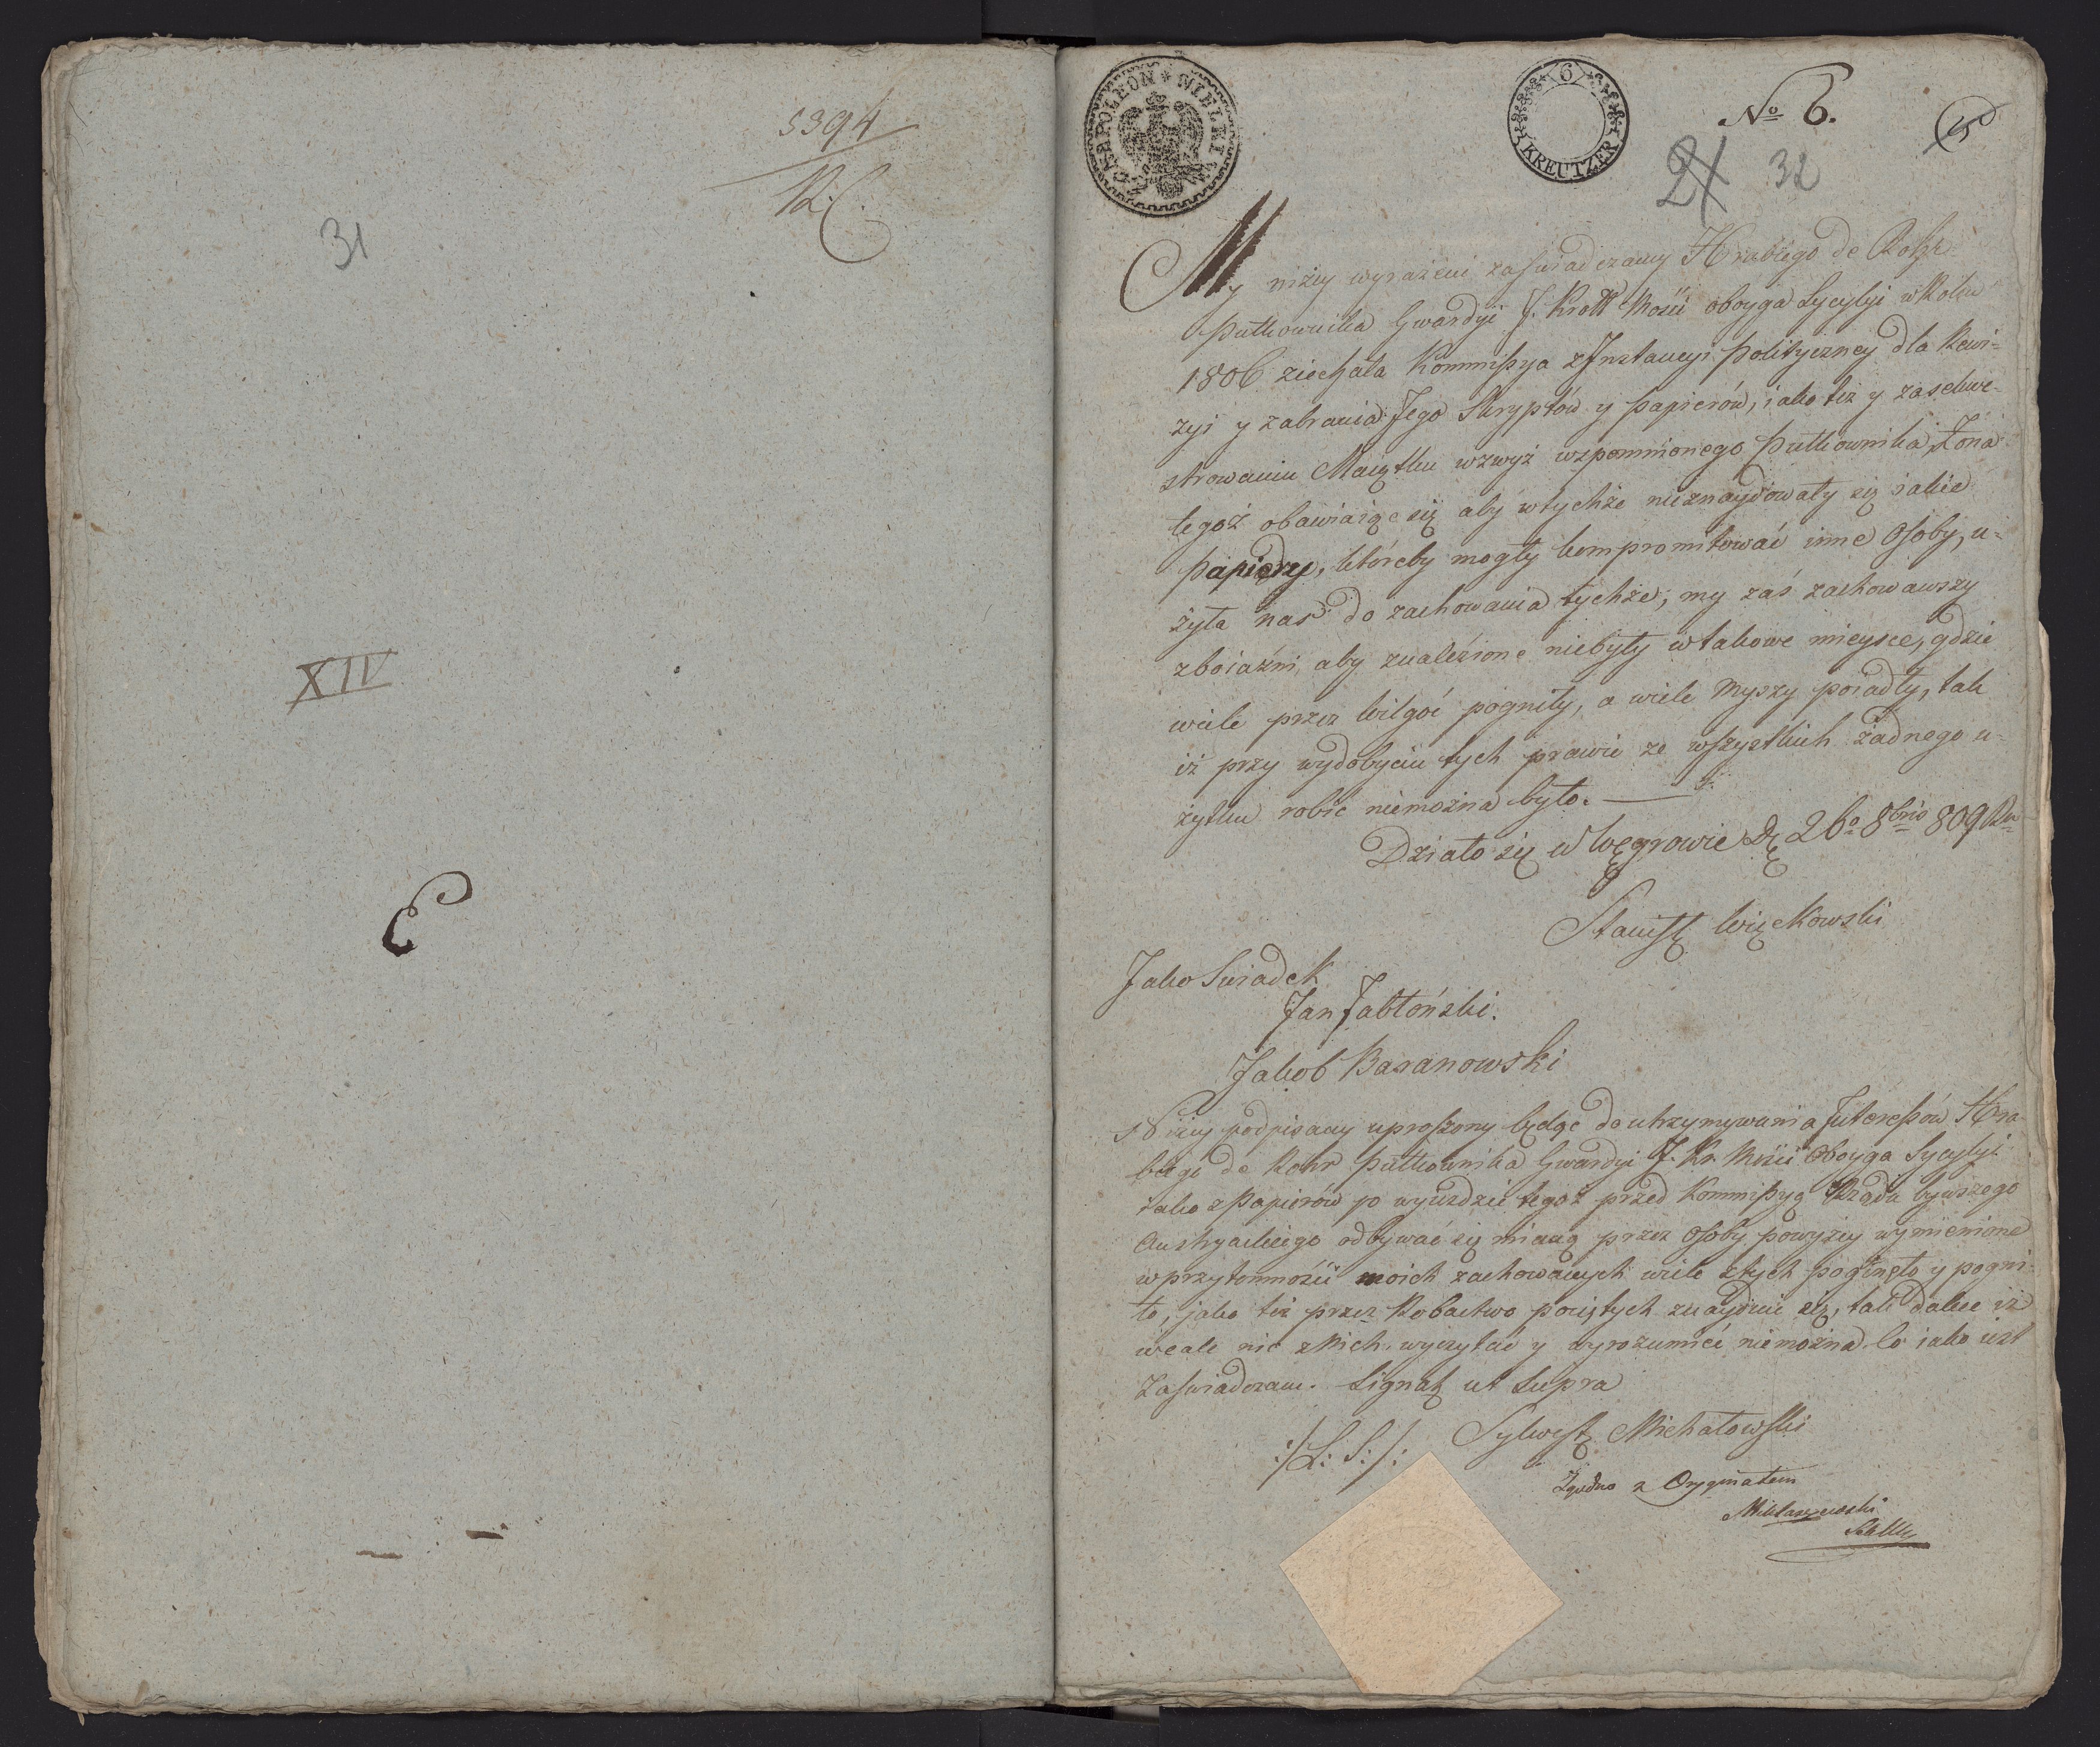 5394
R. C.
31
XIV
E
CES: NAPOLEON * WIELKI
6
KREUTZER
No 6.
21 32
My niżey wyrażeni zaswiadczamy Hrabiego de Rohr
Pułkownika Gwardyi J. Krolł Mości oboyga Sycylyi wRoku
1806 ziechała Kommissya zInstancyi polityczney dla Rewi-
zyi y zabrania Jego Skryptów y papierów, iako też y zasekwe-
strowaniu Maiątku wzwyż wspomnionego Pułkownika, Żona
tegoż obawiaiąc się aby wtychże nieznaydowały się iakie
papiery, któreby mogły kompromitować inne Osoby, u-
żyła nas do zachowania tychże; my zaś zachowawszy
zboiaźni aby znalezione niebyły wtakowe mieysce, gdzie
wiele przez Wilgoć pogniły, a wiele Myszy poiadły, tak
iż przy wydobyciu tych prawie ze wszystkich żadnego u-
żytku robić niemożna było.
Działo się w Węgrowie D. 26o 8bris 809 Ru
Stanisł Więckowski
Jako Swiadek
Jan Jabłoński.
Jakob Baranowski
Niżey podpisany uproszony będąc do utrzymywania Interessów Hra-
biego de Rohr Pułkownika Gwardyi J. Kr. Mości Oboyga Sycylyi.
iako zPapierów po wyieździe tegoż przed Kommissyą Rządu bywszego
Austryackiego odbywać się maiąca przez Osoby powyżey wymienione
wprzytomności moich zachowanych wiele ztych poginęło y pogni-
ło, jako też przez Robactwo pociętych znayduie się, tak dalece iż
wcale nic zNich wyczytać y wyrozumieć niemożna. Co iako iest
Zaświadczam. Signat ut Supra
:/L: S:/: Sylwest Michałowski
Zgodno z Oryginałem
Miklaszewski